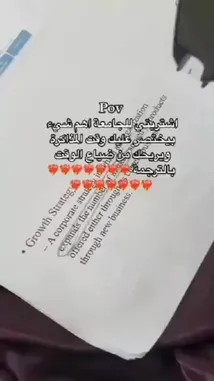 Pov
اشتريتي للجامعة اهم شيء
بيختصر عليك وقت المذاكرة
ويريحك من ضياع الوقت
بالترجمة ❤️‍🔥❤️‍🔥❤️‍🔥❤️‍🔥❤️‍🔥❤️‍🔥❤️‍🔥
❤️‍🔥❤️‍🔥❤️‍🔥❤️‍🔥❤️‍🔥❤️‍🔥❤️‍🔥
• Growth Strategy
– A corporate strategy
expands the number of products
offered either through
through new business